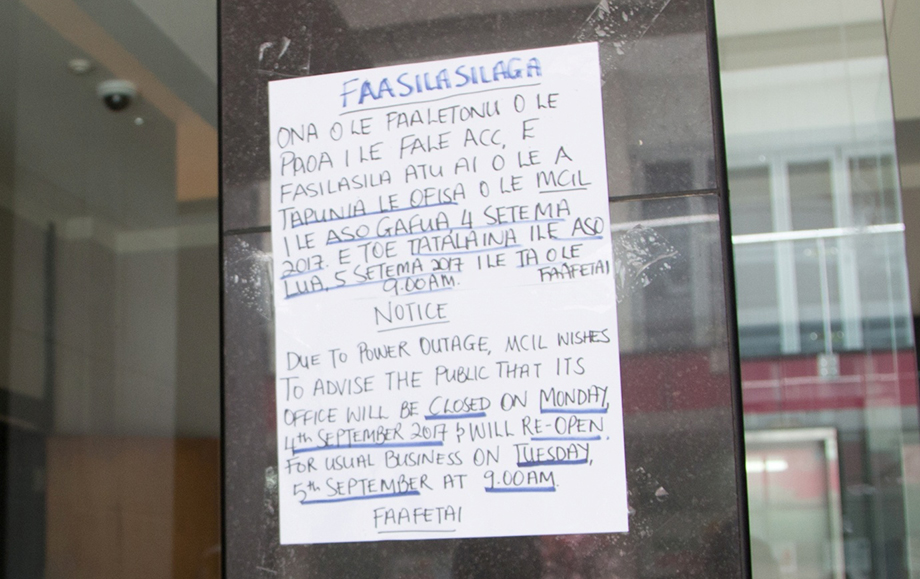 FAASILASILAGA
ONA O LE FAALETONU O LE
PAOA I LE FALE ACC, E
FASILASILA ATU AI O LE A
TAPUNIA LE OFISA O LE MCIL
I LE ASO GAFUA 4 SETEMA
2017. E TOE TATALAINA ILE ASO
LUA, 5 SETEMA 2017 I LE TA O LE
9.00AM. FAAFETAI
NOTICE
DUE TO POWER OUTAGE, MCIL WISHES
TO ADVISE THE PUBLIC THAT ITS
OFFICE WILL BE CLOSED ON MONDAY,
4th SEPTEMBER 2017 & WILL RE-OPEN
FOR USUAL BUSINESS ON TUESDAY,
5th SEPTEMBER AT 9.00AM.
FAAFETAI